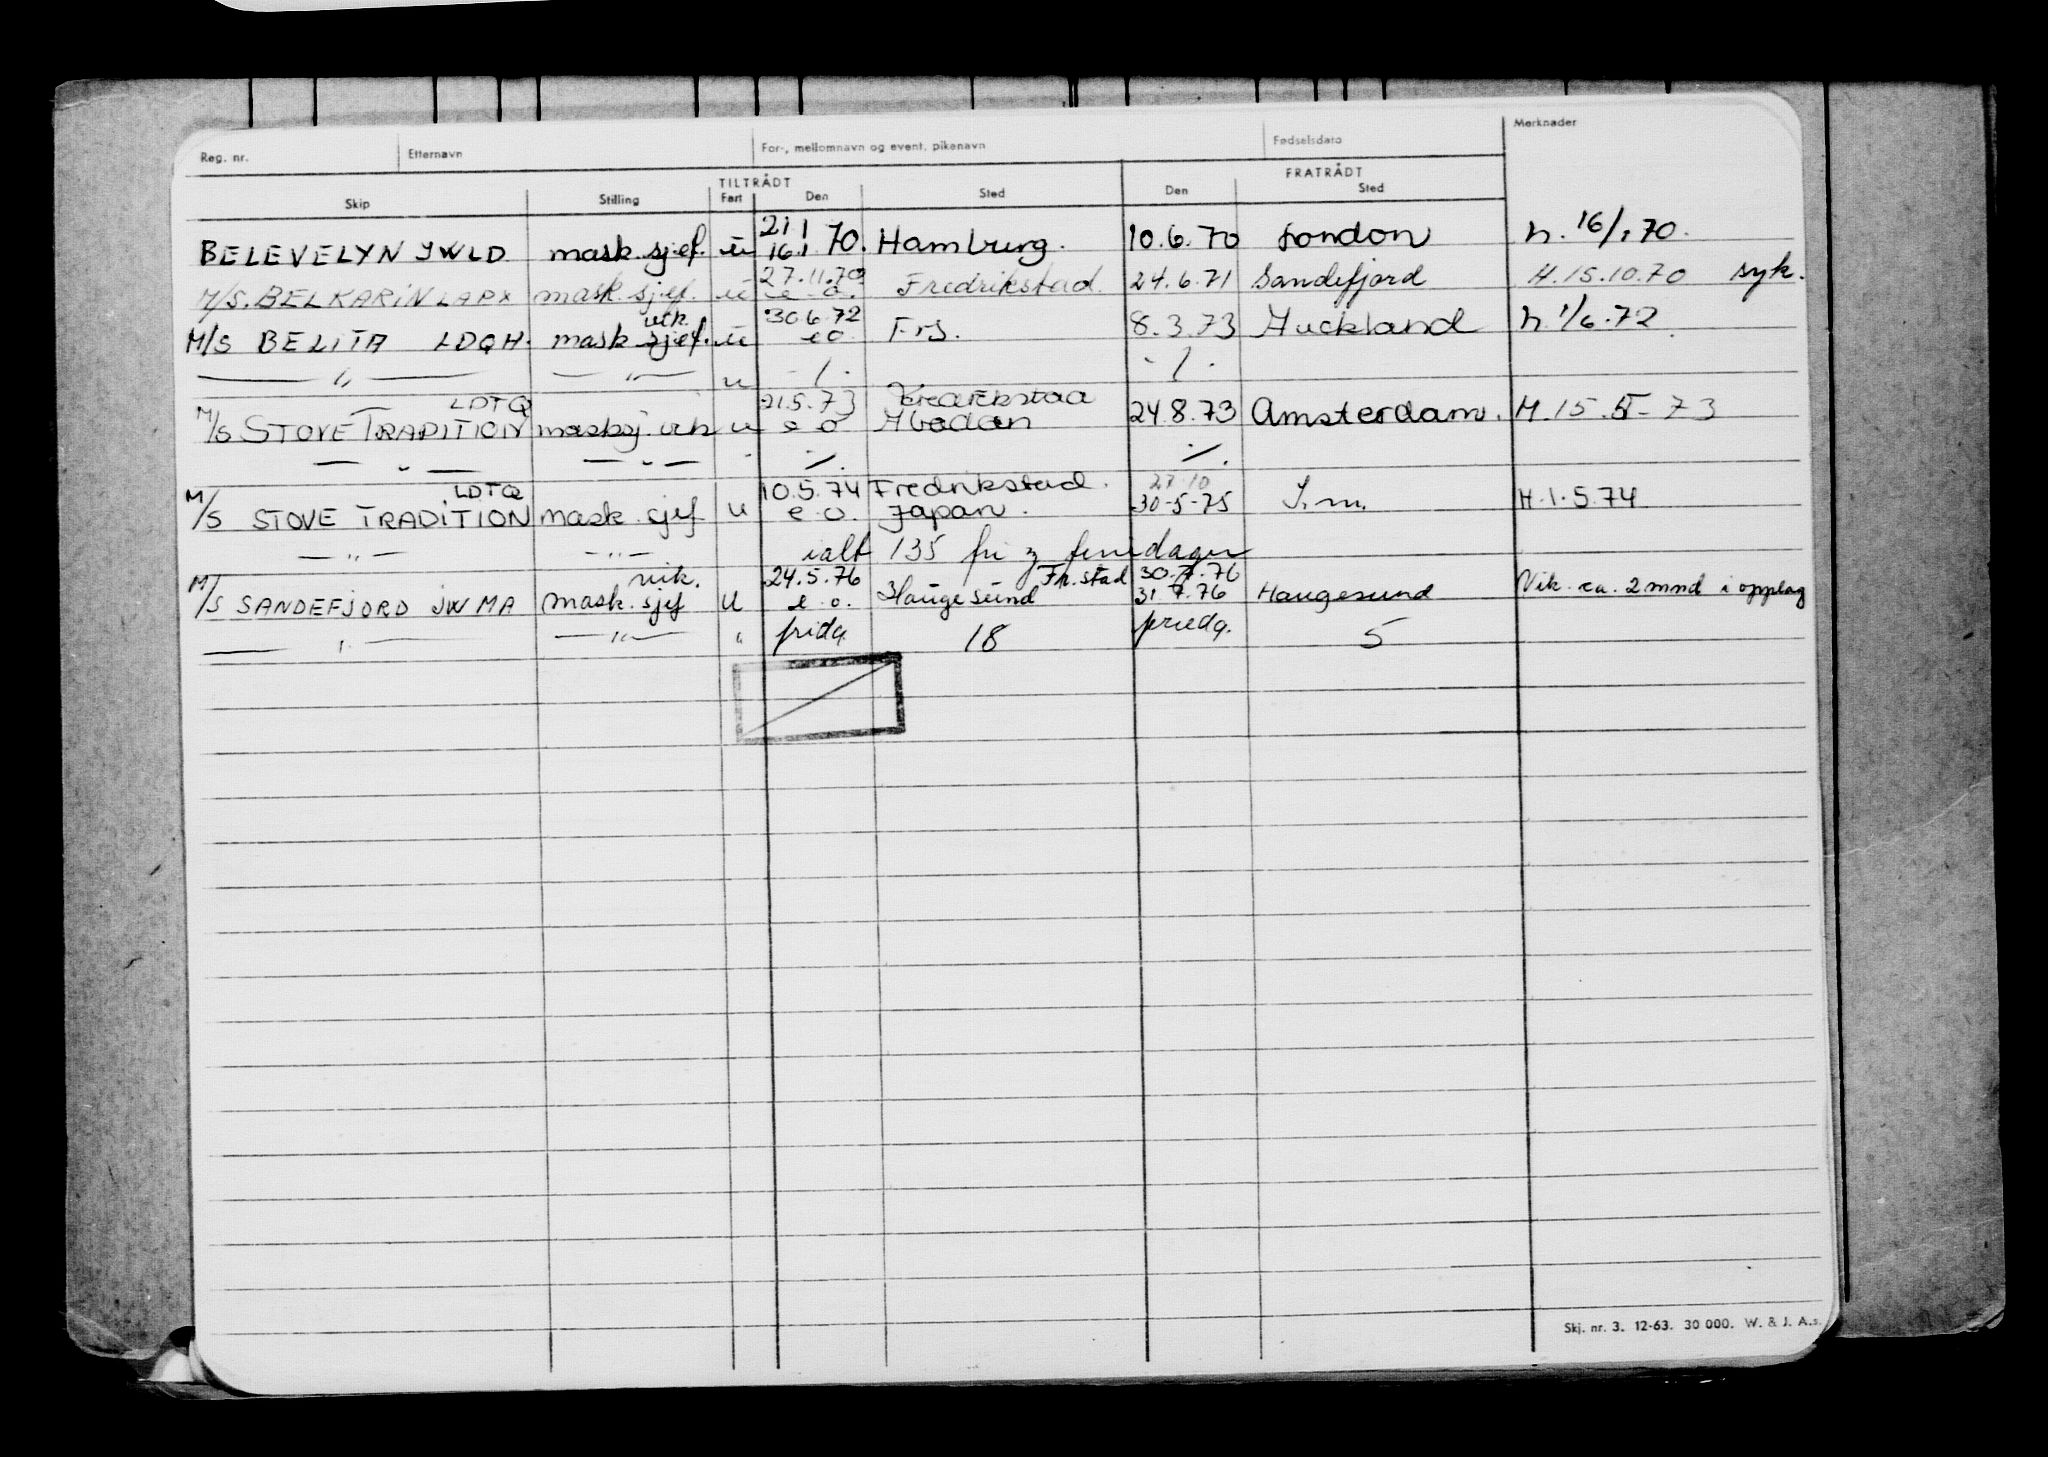 Reg. nr. Etternavn For-, mellomnavn og event. pikenavn Fødselsdato Merknader
TILTRÅDT FRATRÅDT
Skip Stilling Fart Den Sted Den Sted
21.1
BELEVELYN JWLD mask.sjef. u 16.1 70. Hamburg. 10.6.70 London h. 16/1 70.
27.11.70
M/S. BELKARIN LAPX mask.sjef. u e.o. Fredrikstad. 24.6.71 Sandefjord H.15.10.70 syk.
vik. 30.6.72
M/S BELITA LDQH. mask.sjef. u e o Frs. 8.3.73 Auckland h. 1/6.72.
— " — — " — u - / . - / .
LDTQ 21.5.73 Fredrikstad
M/S STOVE TRADITION masksj. vik u e o Abadan 24.8.73 Amsterdam. H.15.5-73
— " — — " — " ⁒ ⁒
LDTQ 10.5.74 Fredrikstad. 27 10
M/S STOVE TRADITION mask. sjef u e.o. Japan. 30-5-75 S.m. H.1.5.74
— " — — " — ialt 135 fri feriedager
vik. 24.5.76 Fr.stad 30.7.76
M/S SANDEFJORD JWMA mask. sjef U e.o. Haugesund 31.7.76 Haugesund Vik. ca. 2 mnd i opplag
— " — — " — " fridg. 18 friedg. 5
Skj. nr. 3. 12-63. 30 000. W. & J. A.s.